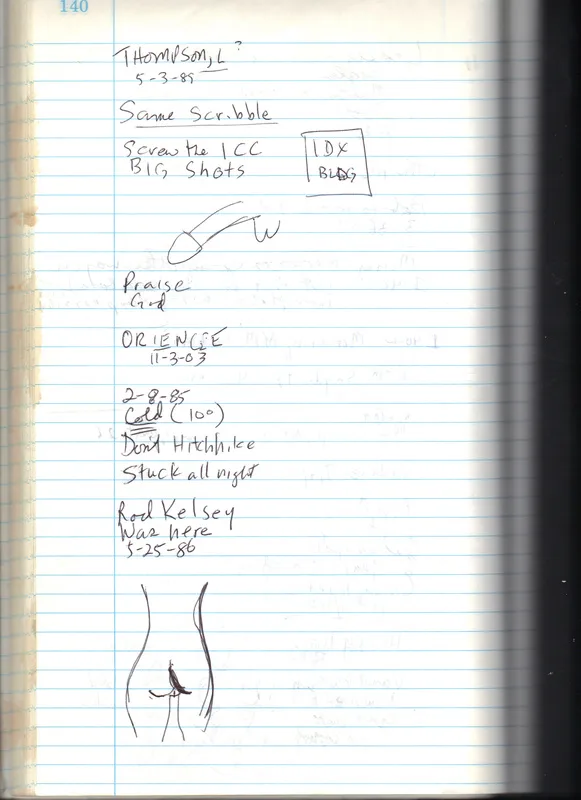 140
THOMPSON, L ?
5-3-89
Same Scribble
Screw the ICC
BIG Shots
IDX
BLDG
Praise
God
ORIENCEE
11-3-03
2-8-85
Cold (10°)
Don't Hitchhike
Stuck all night
Rod Kelsey
Was here
5-25-86